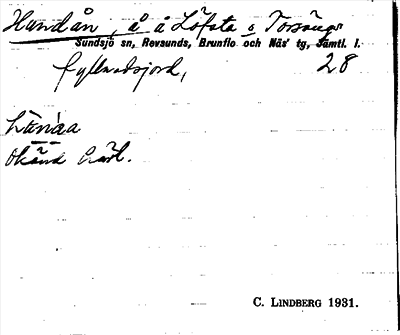 Hundån, å å Löfsta o Torsäng
Sundsjö sn, Revsunds, Brunflo och Näs' tg, Jämtl. l.
fyllnadsjord, 28
Okänd härl.
C. LINDBERG 1931.